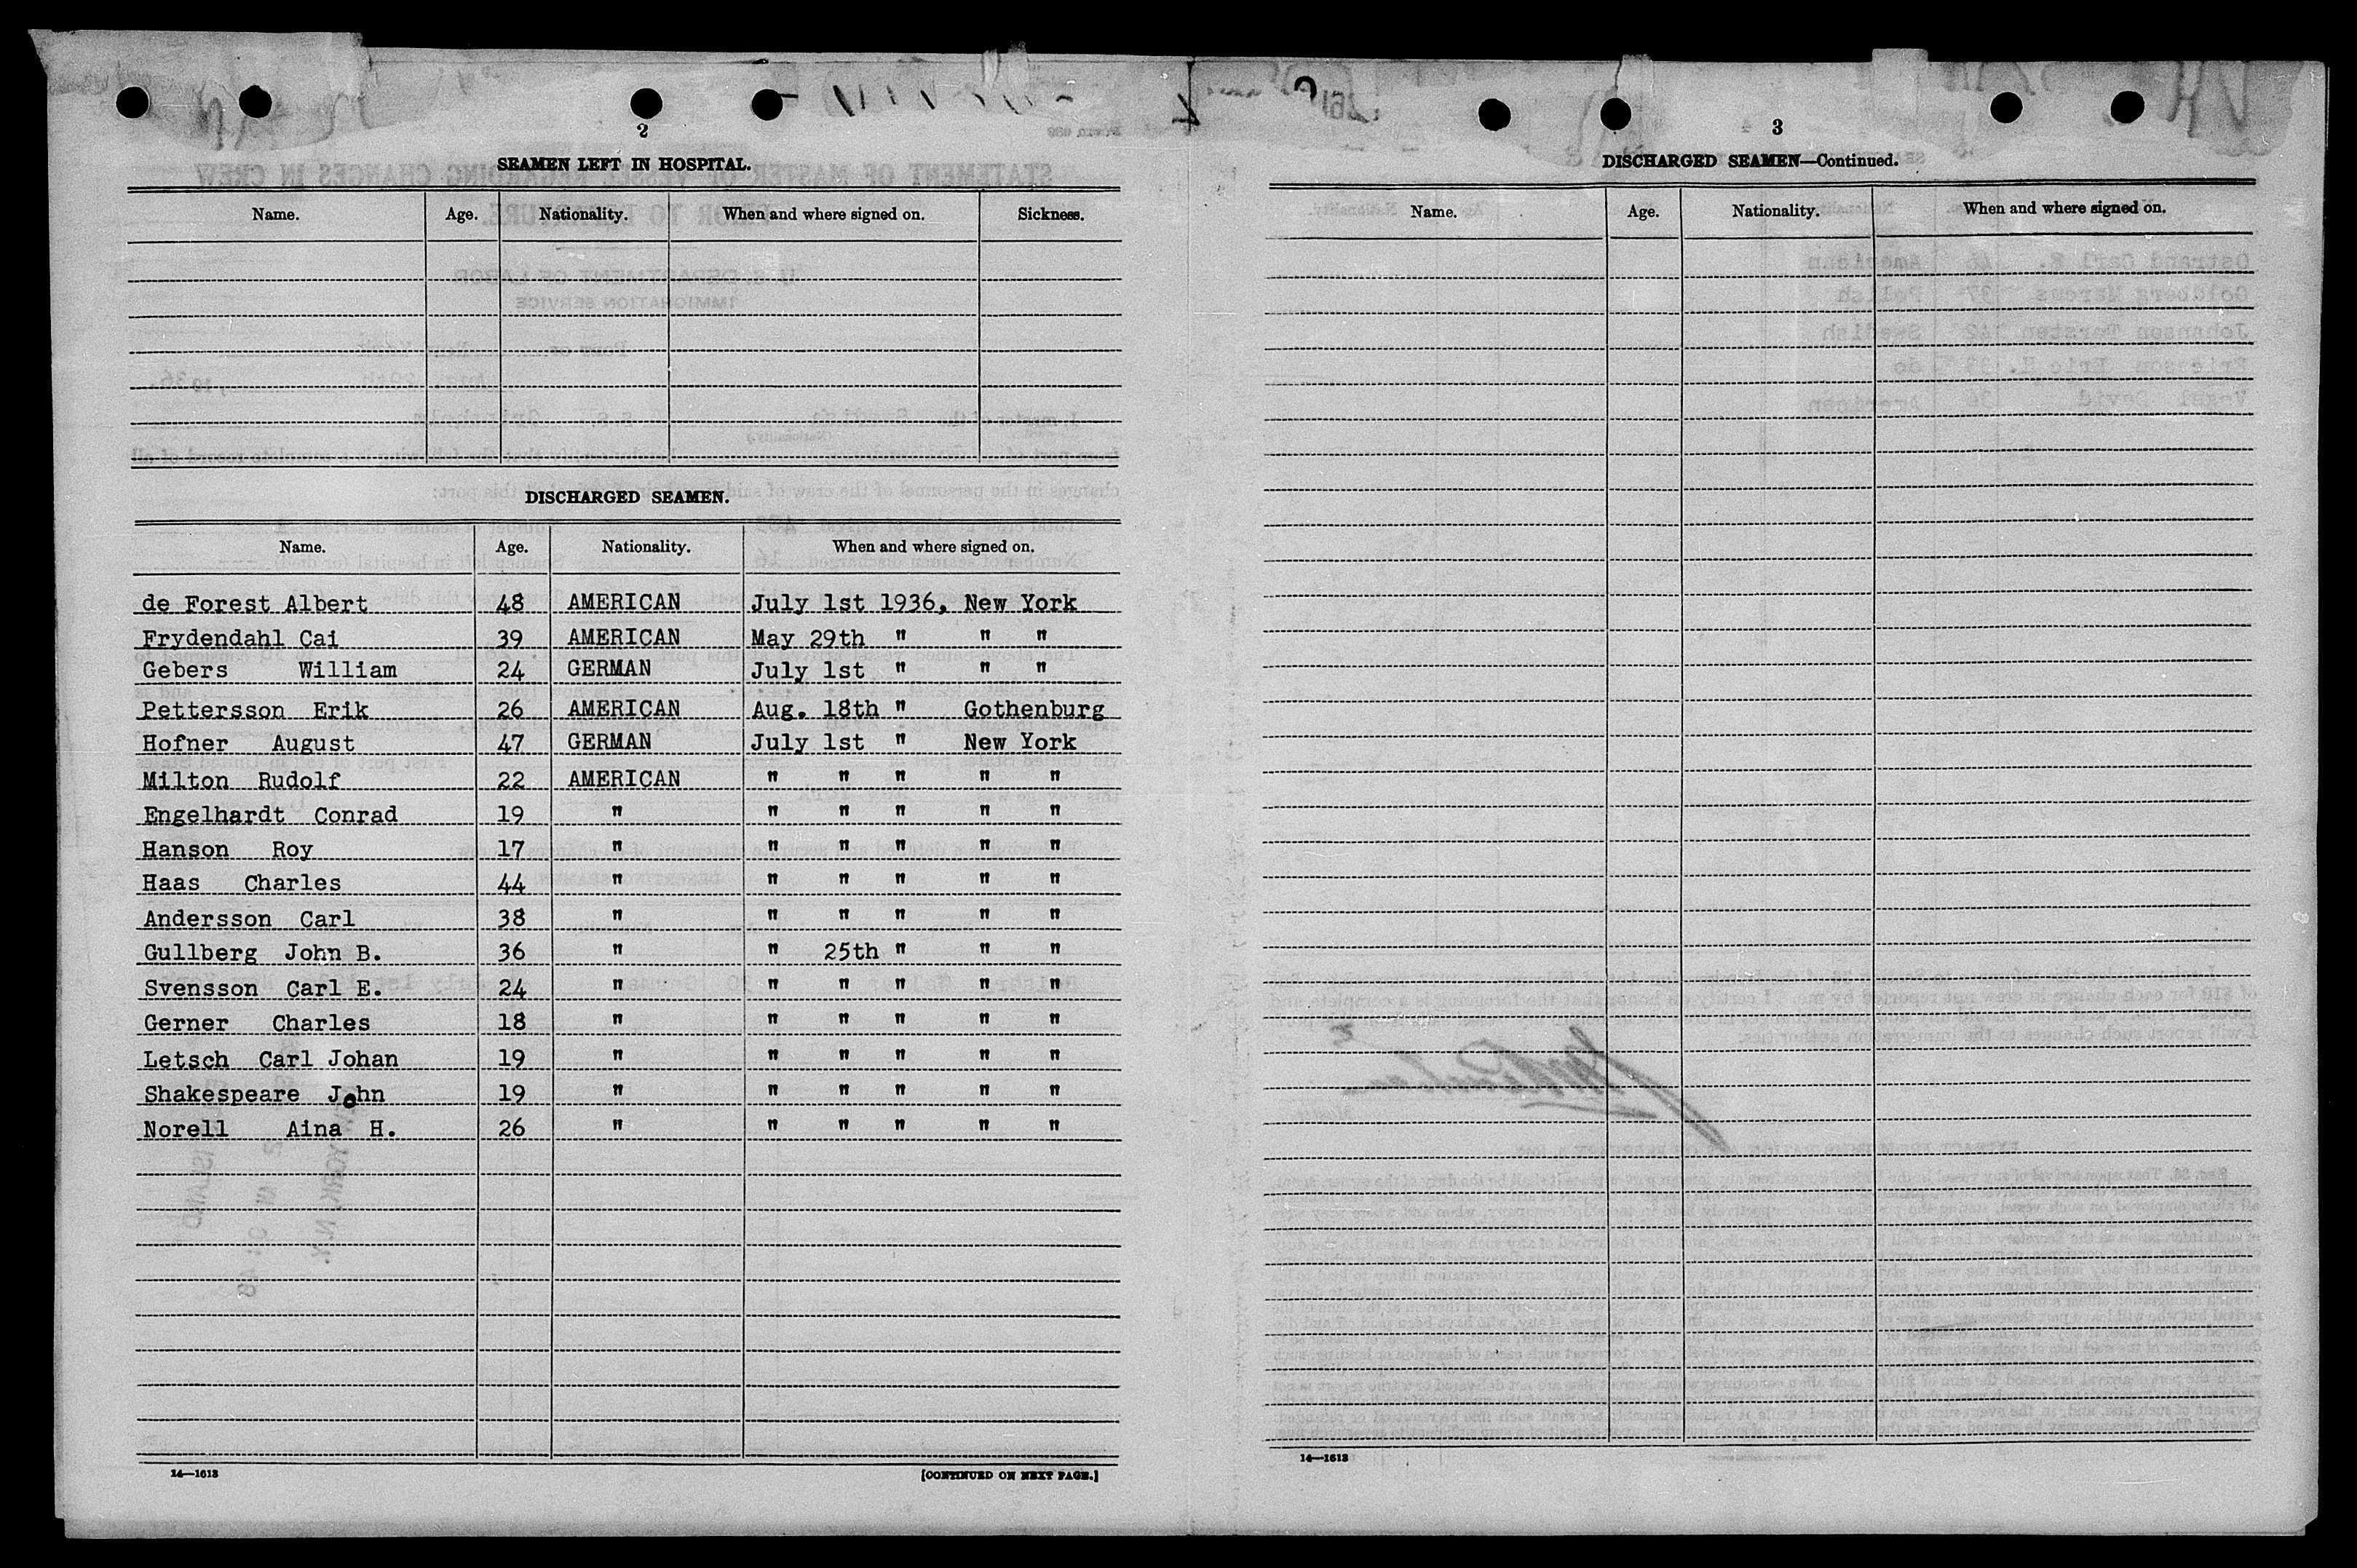 2
SEAMEN LEFT IN HOSPITAL.
Name. Age. Nationality. When and where signed on. Sickness.
DISCHARGED SEAMEN.
Name. Age. Nationality. When and where signed on.
de Forest Albert 48 AMERICAN July 1st 1936, New York
Frydendahl Cai 39 AMERICAN May 29th " " "
Gebers William 24 GERMAN July 1st " " "
Pettersson Erik 26 AMERICAN Aug. 18th " Gothenburg
Hofner August 47 GERMAN July 1st " New York
Milton Rudolf 22 AMERICAN " " " " "
Engelhardt Conrad 19 " " " " " "
Hanson Roy 17 " " " " " "
Haas Charles 44 " " " " " "
Andersson Carl 38 " " " " " "
Gullberg John B. 36 " " 25th " " "
Svensson Carl E. 24 " " " " " "
Gerner Charles 18 " " " " " "
Letsch Carl Johan 19 " " " " " "
Shakespeare John 19 " " " " " "
Norell Aina H. 26 " " " " " "
14—1613
[CONTINUED ON NEXT PAGE.]
3
DISCHARGED SEAMEN—Continued.
Name. Age. Nationality. When and where signed on.
14—1613